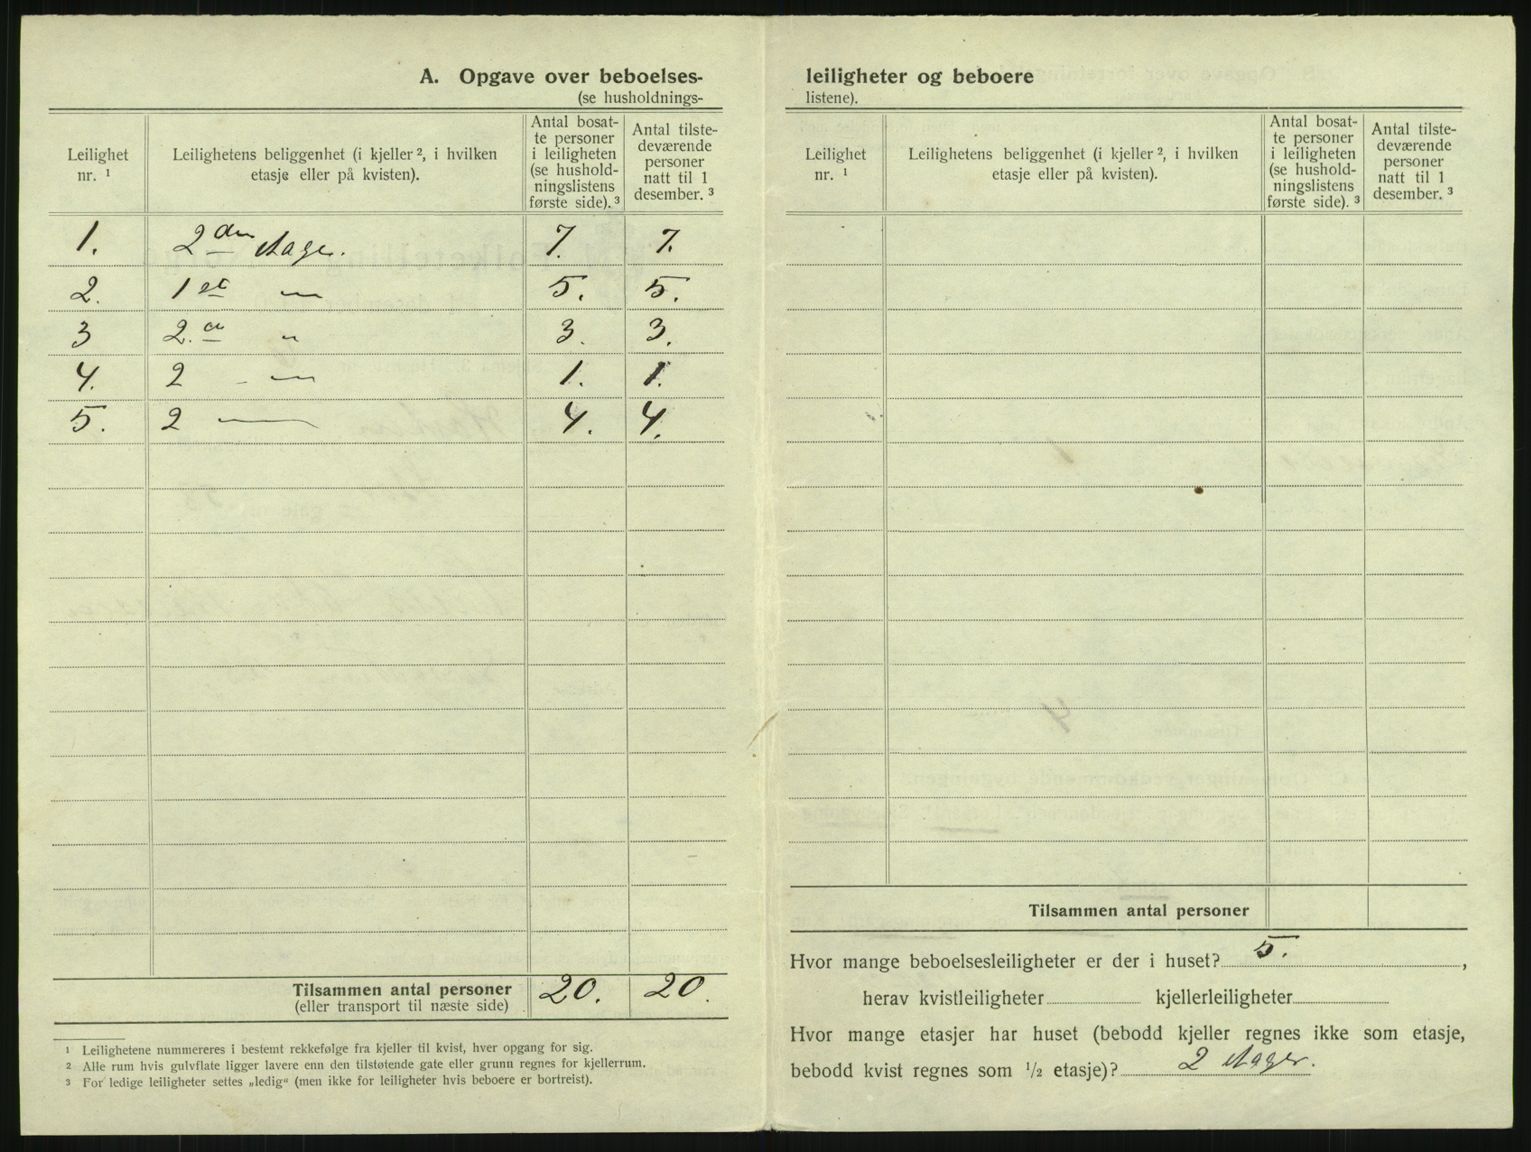 A. Opgave over beboelses- leiligheter og beboere
(se husholdnings- listene).
Leilighet nr. ¹
Leilighetens beliggenhet (i kjeller ², i hvilken etasje eller på kvisten).
Antal bosat-te personer i leiligheten (se hushold-ningslistens første side). ³
Antal tilste-deværende personer natt til 1 desember. ³
1. 2den Etager. 7. 7.
2. 1st — 5. 5.
3 2.d " 3. 3.
4. 2 - — 1. 1.
5. 2 — 4. 4.
Tilsammen antal personer 20. 20.
(eller transport til næste side)
¹ Leilighetene nummereres i bestemt rekkefølge fra kjeller til kvist, hver opgang for sig.
² Alle rum hvis gulvflate ligger lavere enn den tilstøtende gate eller grunn regnes for kjellerrum.
³ For ledige leiligheter settes „ledig“ (men ikke for leiligheter hvis beboere er bortreist).
Leilighet nr. ¹
Leilighetens beliggenhet (i kjeller ², i hvilken etasje eller på kvisten).
Antal bosat-te personer i leiligheten (se hushold-ningslistens første side). ³
Antal tilste-deværende personer natt til 1 desember. ³
Tilsammen antal personer
Hvor mange beboelsesleiligheter er der i huset? 5. ,
herav kvistleiligheter kjellerleiligheter
Hvor mange etasjer har huset (bebodd kjeller regnes ikke som etasje,
bebodd kvist regnes som ½ etasje)? 2 Etager.